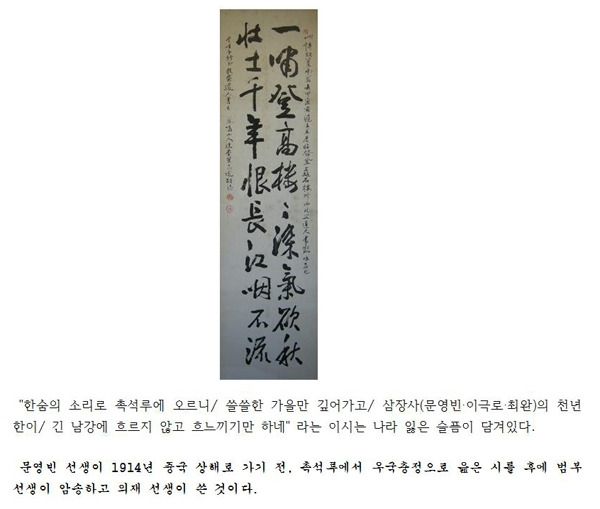 一嘯登高樓〻深氣欲秋
壯士千年恨長江咽不流
"한숨의 소리로 촉석루에 오르니/ 쓸쓸한 가을만 깊어가고/ 삼장사(문영빈·이극로·최완)의 천년
한이/ 긴 남강에 흐르지 않고 흐느끼기만 하네" 라는 이시는 나라 잃은 슬픔이 담겨있다.
문영빈 선생이 1914년 중국 상해로 가기 전, 촉석루에서 우국충정으로 읊은 시를 후에 범부
선생이 암송하고 의재 선생이 쓴 것이다.